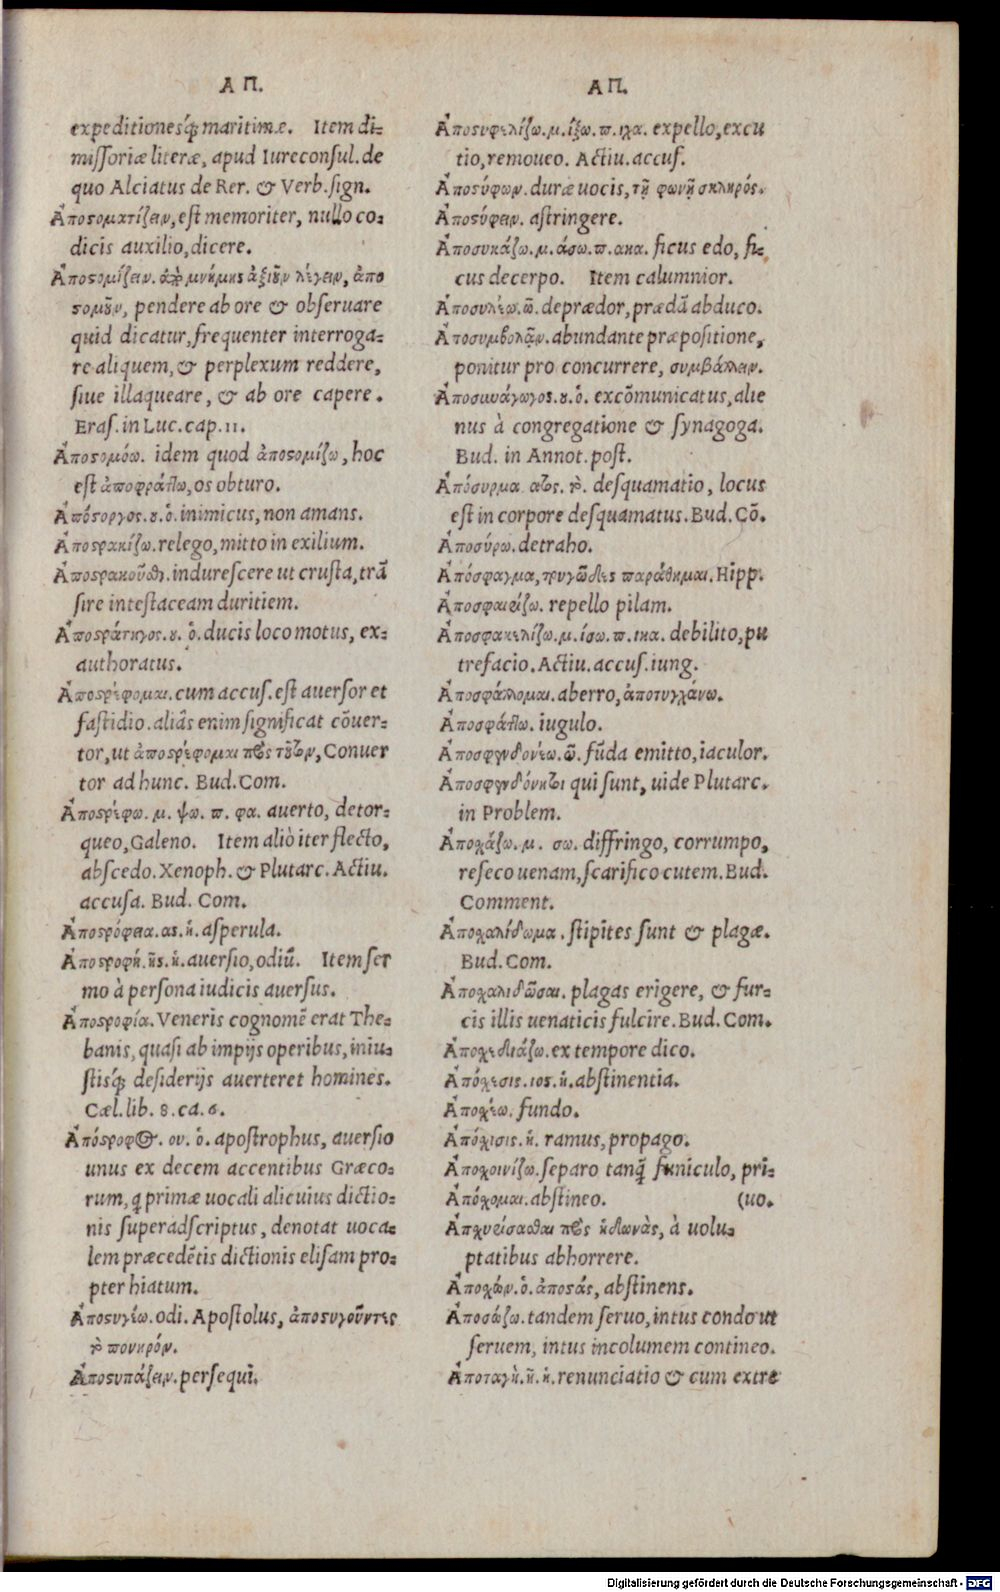 ΑΠ.
expeditionesq́; maritimæ. Item di-
missoriæ literæ, apud Iureconsul. de
quo Alciatus de Rer. & Verb. sign.
Ἀποϛοματίζειν, est memoriter, nullo co-
dicis auxilio, dicere.
Ἀποϛομίζειν. μνήμης ἀξιοῦν λέγειν, ἀπο
ϛομοῦν, pendere ab ore & obseruare
quid dicatur, frequenter interroga-
re aliquem, & perplexum reddere,
siue illaqueare, & ab ore capere.
Eras. in Luc. cap. 11.
Ἀποϛομόω. idem quod ἀποϛομίζω, hoc
est ἀποφράτlω, os obturo.
Ἀπόϛοργος. ȣ. ὁ. inimicus, non amans.
Ἀποϛρακίζω. relego, mitto in exilium.
Ἀποϛρακοῦσθαι. indurescere ut crusta, trã
sire in testaceam duritiem.
Ἀποϛράτηγος. ȣ. ὁ. ducis loco motus, ex-
authoratus.
Ἀποϛρέφομαι. cum accus. est auersor et
fastidio. aliâs enim significat cõuer-
tor, ut ἀποϛρέφομαι πρὸς τοῦτον, Conuer
tor ad hunc. Bud. Com.
Ἀποϛρέφω. μ. ψω. π. φα. auerto, detor-
queo, Galeno. Item aliò iter flecto,
abscedo. Xenoph. & Plutarc. Actiu.
accusa. Bud. Com.
Ἀποϛρόφεια. ας. ἡ. asperula.
Ἀποϛροφή. ῆς. ἡ. auersio, odiũ. Item ser
mo à persona iudicis auersus.
Ἀποϛροφία. Veneris cognomẽ erat The-
banis, quasi ab impijs operibus, iniu-
stisq́; desiderijs auerteret homines.
Cæl. lib. 8. ca. 6.
Ἀπόϛροφος. ου. ὁ. apostrophus, auersio
unus ex decem accentibus Græco-
rum, q primæ uocali alicuius dictio-
nis superadscriptus, denotat uoca-
lem præcedẽtis dictionis elisam pro-
pter hiatum.
Ἀποϛυγέω. odi. Apostolus, ἀποϛυγοῦντες
τὸ πονηρόν.
Ἀποϛυπάζειν. persequi.
ΑΠ.
Ἀποϛυφελίζω. μ. ίξω. π. ιχα. expello, excu
tio, remoueo. Actiu. accus.
Ἀποϛύφων. duræ uocis, τῇ φωνῇ σκληρός.
Ἀποϛύφειν. astringere.
Ἀποσυκάζω. μ. άσω. π. ακα. ficus edo, fi-
cus decerpo. Item calumnior.
Ἀποσυλέω. ῶ. deprædor, prædã abduco.
Ἀποσυμβολᾷν. abundante præpositione,
ponitur pro concurrere, συμβάλλειν.
Ἀποσυνάγωγος. ȣ. ὁ. excõmunicatus, alie
nus à congregatione & synagoga.
Bud. in Annot. post.
Ἀπόσυρμα ατος. τὸ. desquamatio, locus
est in corpore desquamatus. Bud. Cõ.
Ἀποσύρω. detraho.
Ἀπόσφαγμα, τρυγῶδες παράθημαι. Hipp.
Ἀποσφαιρίζω. repello pilam.
Ἀποσφακελίζω. μ. ίσω. π. ικα. debilito, pu
trefacio. Actiu. accus. iung.
Ἀποσφάλλομαι. aberro, ἀποτυγχάνω.
Ἀποσφάτlω. iugulo.
Ἀποσφενδονέω. ῶ. fũda emitto, iaculor.
Ἀποσφενδόνητοι qui sunt, uide Plutarc.
in Problem.
Ἀποχάζω. μ. σω. diffringo, corrumpo,
reseco uenam, scarifico cutem. Bud.
Comment.
Ἀποχαλίδωμα. stipites sunt & plagæ.
Bud. Com.
Ἀποχαλιδῶσαι. plagas erigere, & fur-
cis illis uenaticis fulcire. Bud. Com.
Ἀποχεδιάζω. ex tempore dico.
Ἀπόχεσις. ιος. ἡ. abstinentia.
Ἀποχέω. fundo.
Ἀπόχισις. ἡ. ramus, propago.
Ἀποχοινίζω. separo tanq̃ funiculo, pri-
Ἀπόχομαι. abstineo. (uo.
Ἀπχυρίσασθαι πρὸς ἡδωνὰς, à uolu-
ptatibus abhorrere.
Ἀποχών. ὁ. ἀποϛάς, abstinens.
Ἀποσώζω. tandem seruo, intus condo ut
seruem, intus incolumem contineo.
Ἀποταγὴ. ῆ. ἡ. renunciatio & cum extre
Digitalisierung gefördert durch die Deutsche Forschungsgemeinschaft - DFG